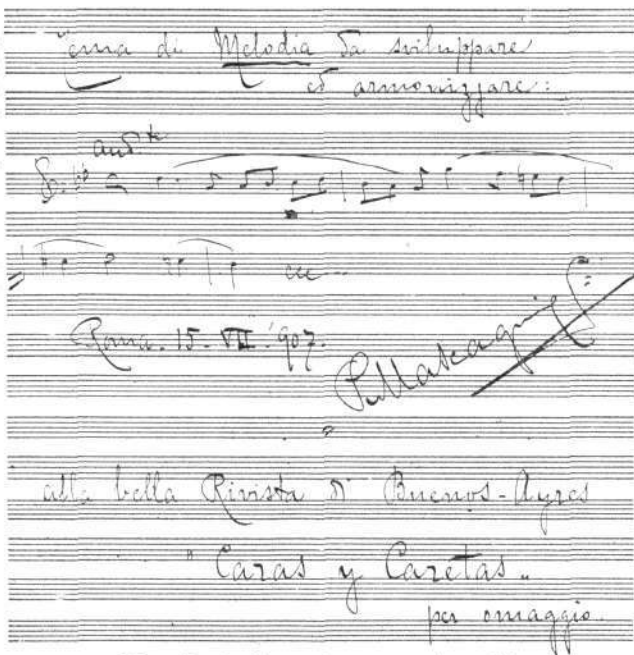 Tema di Melodia da sviluppare
ed armonizzare:
And.te
ecc...
Roma. 15-VII-'907.
P. Mascagni
alla bella Rivista di Buenos-Ayres
"Caras y Caretas"
per omaggio.